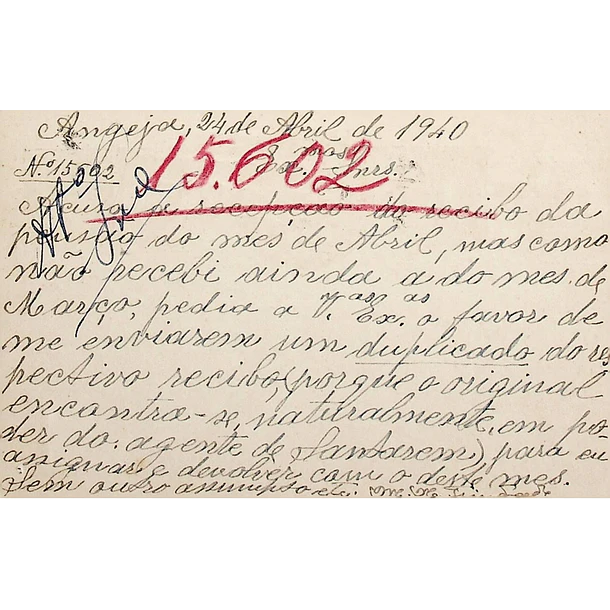 Angeja, 24 de Abril de 1940
Nº 15602 15.602 Ex.mos Snrs.
Acusa a recepção do recibo da
pensão do mes de Abril, mas como
não recebi ainda a do mes de
Março, pedia a V.as Ex.as o favor de
me enviarem um duplicado do res
pectivo recibo (porque o original
encontra-se, naturalmente, em po-
der do agente de Santarem) para eu
assignar e devolver com o deste mes.
Sem outro assumpto etc.